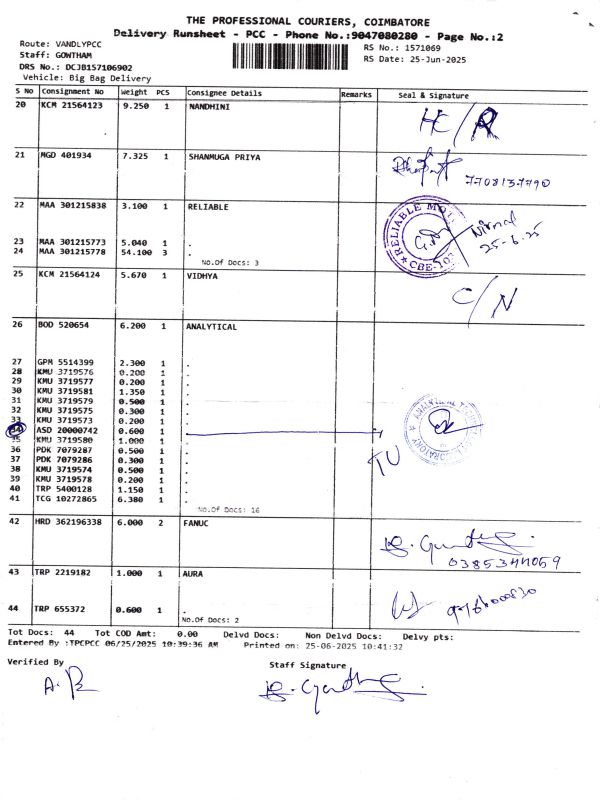 THE PROFESSIONAL COURIERS, COIMBATORE
Delivery Runsheet - PCC - Phone No.:9047080280 - Page No.:2
Route: VANDLYPCC
Staff: GOWTHAM
DRS No.: DCJB157106902
Vehicle: Big Bag Delivery
RS No.: 1571069
RS Date: 25-Jun-2025
S No Consignment No Weight PCS Consignee Details Remarks Seal & Signature
20 KCM 21564123 9.250 1 NANDHINI
21 MGD 401934 7.325 1 SHANMUGA PRIYA
7708137790
22 MAA 301215838 3.100 1 RELIABLE
RELIABLE
CBE-102
Nirmal
25-6-25
23 MAA 301215773 5.040 1 .
24 MAA 301215778 54.100 3 .
No.Of Docs: 3
25 KCM 21564124 5.670 1 VIDHYA
C/N
26 BOD 520654 6.200 1 ANALYTICAL
27 GPM 5514399 2.300 1 .
28 KMU 3719576 0.200 1 .
29 KMU 3719577 0.200 1 .
30 KMU 3719581 1.350 1 .
31 KMU 3719579 0.500 1 .
32 KMU 3719575 0.300 1 .
33 KMU 3719573 0.200 1 .
34 ASD 20000742 0.600 1 .
35 KMU 3719580 1.000 1 .
36 PDK 7079287 0.500 1 .
37 PDK 7079286 0.300 1 .
38 KMU 3719574 0.500 1 .
39 KMU 3719578 0.200 1 .
40 TRP 5400128 1.150 1 .
41 TCG 10272865 6.380 1 .
No.Of Docs: 16
TU
42 HRD 362196338 6.000 2 FANUC
43 TRP 2219182 1.000 1 AURA
44 TRP 655372 0.600 1 .
No.Of Docs: 2
Tot Docs: 44 Tot COD Amt: 0.00 Delvd Docs: Non Delvd Docs: Delvy pts:
Entered By :TPCPCC 06/25/2025 10:39:36 AM Printed on: 25-06-2025 10:41:32
Verified By
Staff Signature